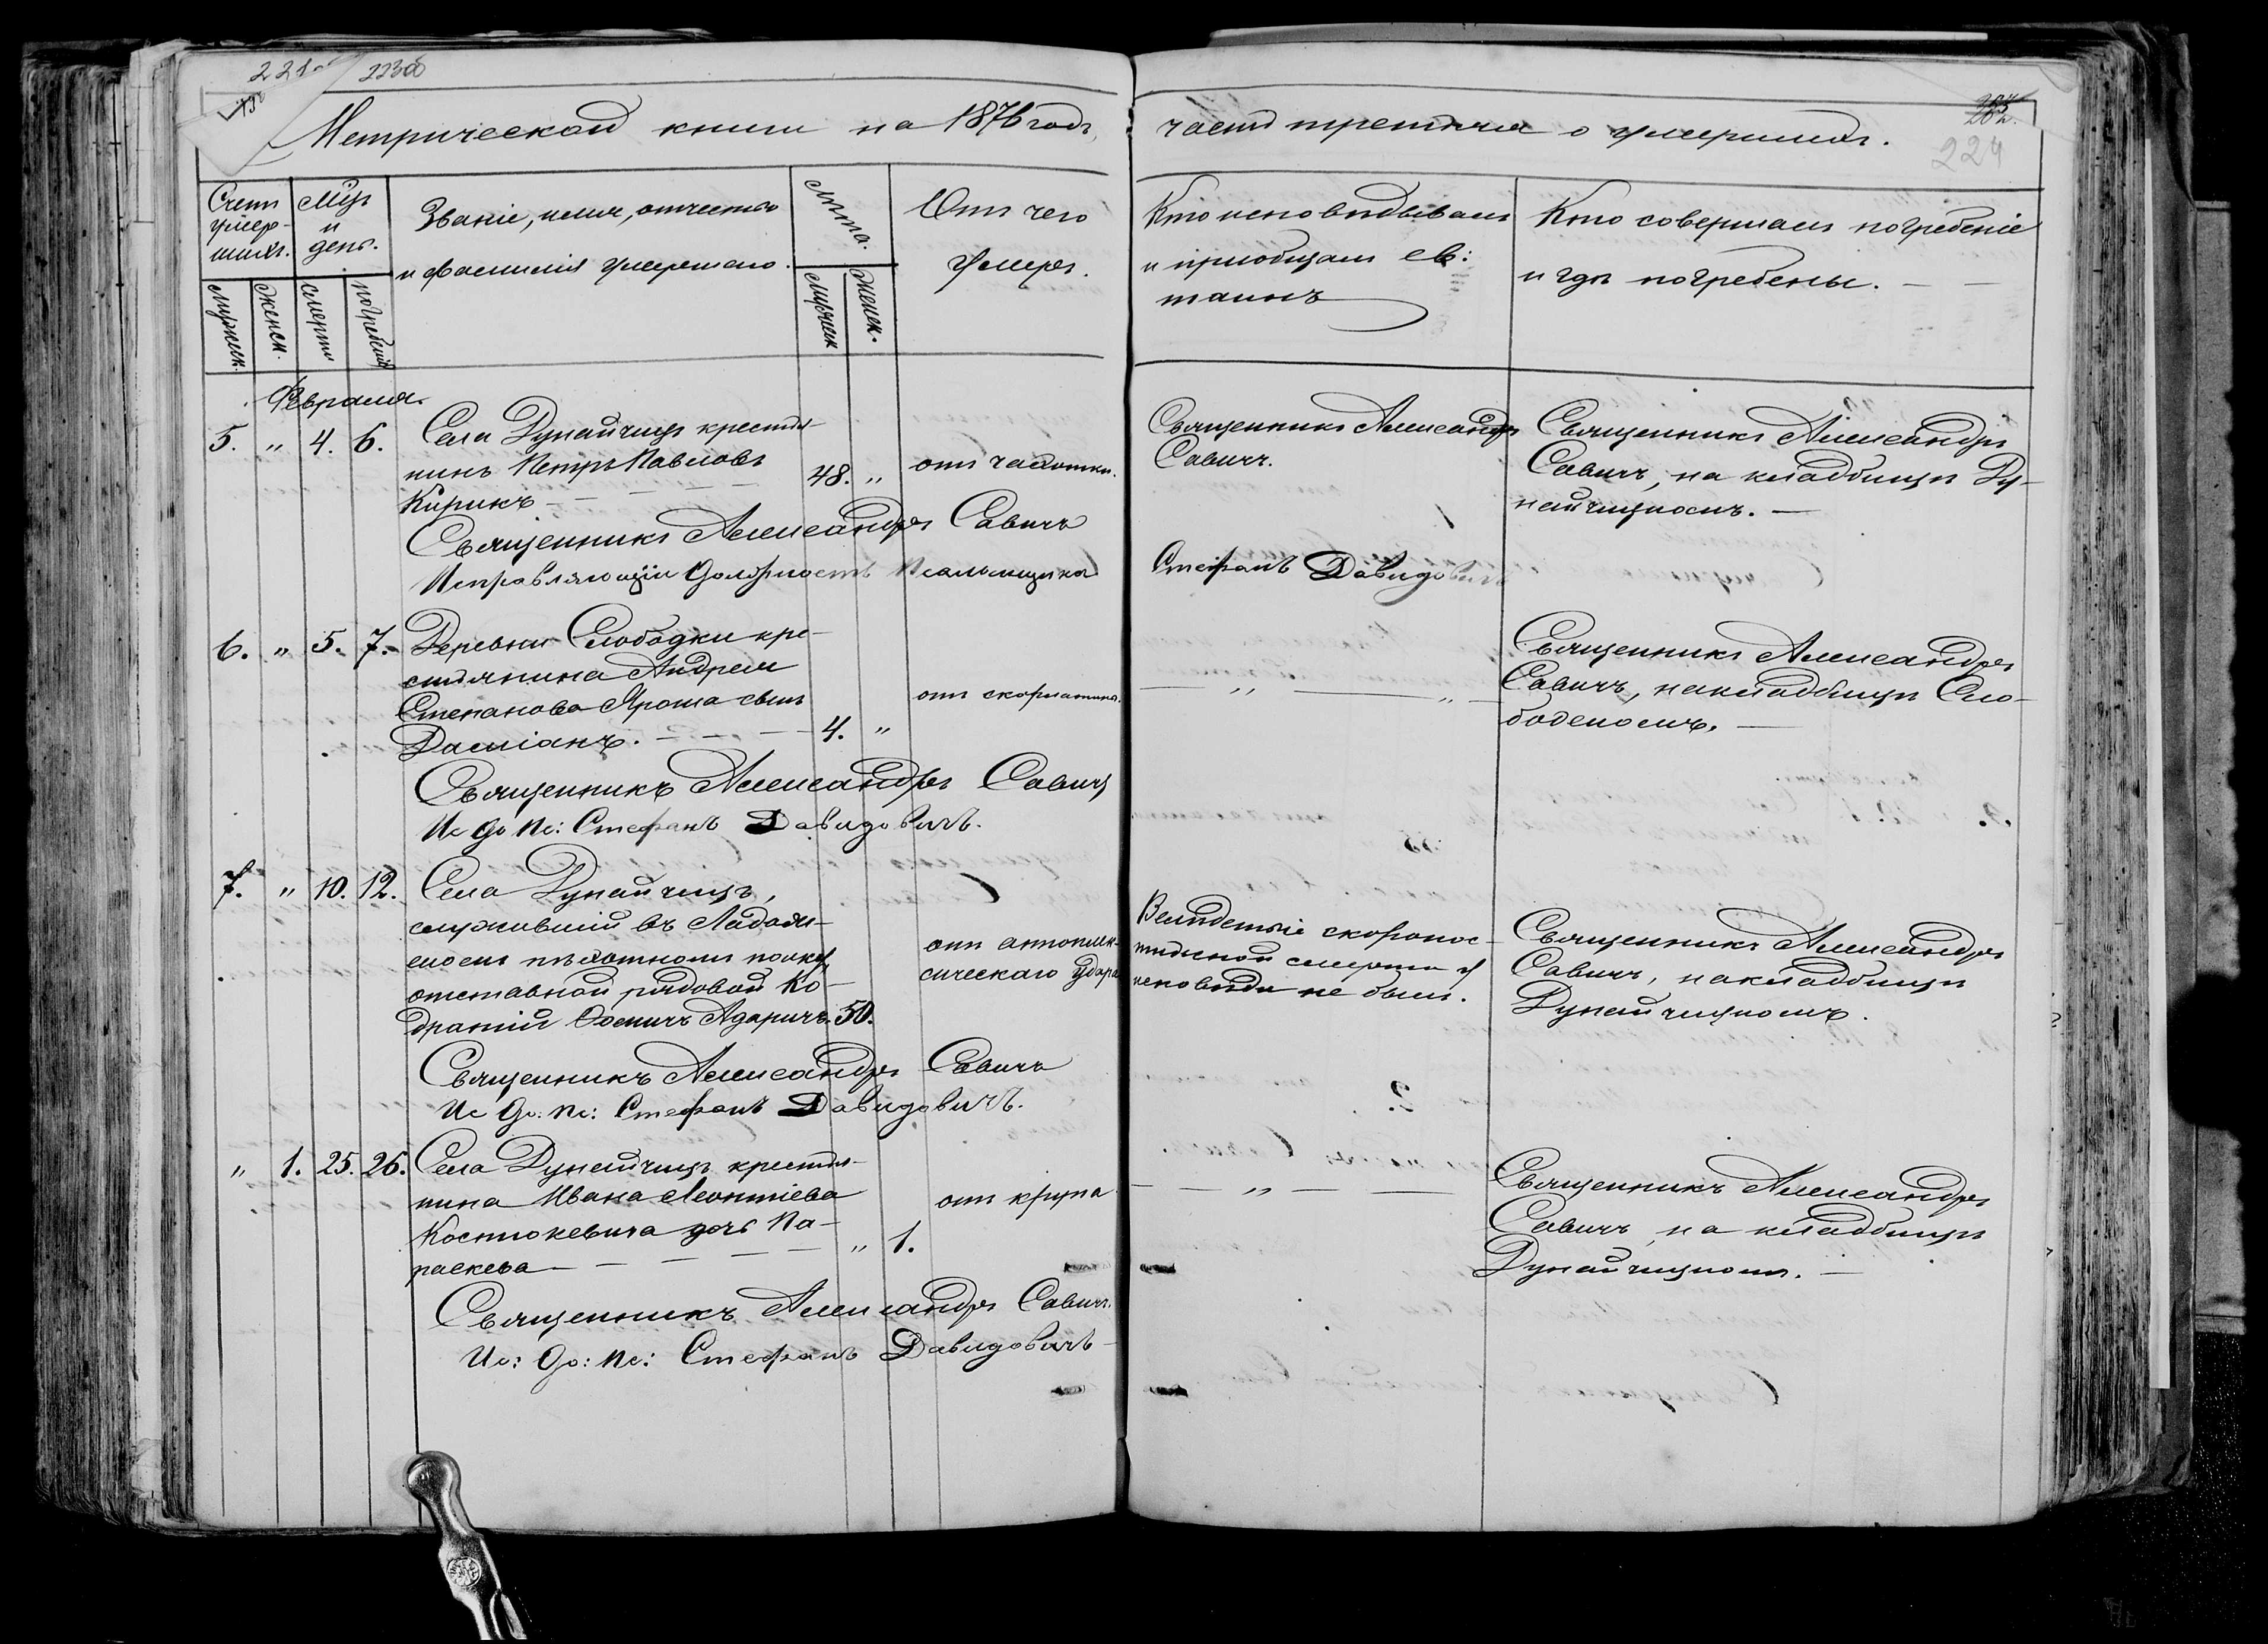 221
223об
Метрической книги на 1876 годъ,
части третьяя о умершихъ.
224
Счетъ умер-
шихъ.
Мцъ и
день.
Званіе, имя, отчество
и фамилія умершаго.
Лѣта.
Отъ чего
умеръ.
Кто исповѣдывалъ
и пріобщалъ св:
таинъ
Кто совершалъ погребеніе
и гдѣ погребены.
Мужеск.
Женск.
Смерти
Погребенія
Мужеск
Женск.
Февраля.
5. „ 4. 6. Села Дунайчицъ крестья-
нинъ Петръ Павловъ 48. „ отъ чахотки.
Кирикъ
Священникъ Александръ
Савичъ.
Священникъ Александръ
Савичъ, на кладбищѣ Ду-
найчицкомъ.
Священникъ Александръ Савичъ
Исправляющій Должность Псаломщика Стефанъ Давидовичъ
6. „ 5. 7. Деревни Слободки кре-
стьянина Андрея
Степанова Яроша сынъ отъ скорлатины.
Даміанъ. 4. „
„ „
Священникъ Александръ
Савичъ, на кладбищѣ Сло-
бодскомъ.
Священникъ Александръ Савичъ
Ис До Пс: Стефанъ Давидовичъ.
7. „ 10. 12. Села Дунайчицъ,
служившій въ Ладож-
скомъ пѣхотномъ полку,
отставной рядовой Ко-
дратій Ѳомичъ Адаричъ. 50.
отъ апоплек-
сическаго удара
Вслѣдствіе скоропос-
тижной смерти у
исповѣди не былъ.
Священникъ Александръ
Савичъ, на кладбищѣ
Дунайчицкомъ.
Священникъ Александръ Савичъ
Ис До: Пс: Стефанъ Давидовичъ.
„ 1. 25. 26. Села Дунайчицъ крестья-
нина Ивана Леонтіева отъ крупа
Костюкевича дочь Па-
раскева „ 1.
„
Священникъ Александръ
Савичъ, на кладбищѣ
Дунайчицкомъ.
Священникъ Александръ Савичъ.
Ис: До: Пс: Стефанъ Давидовичъ